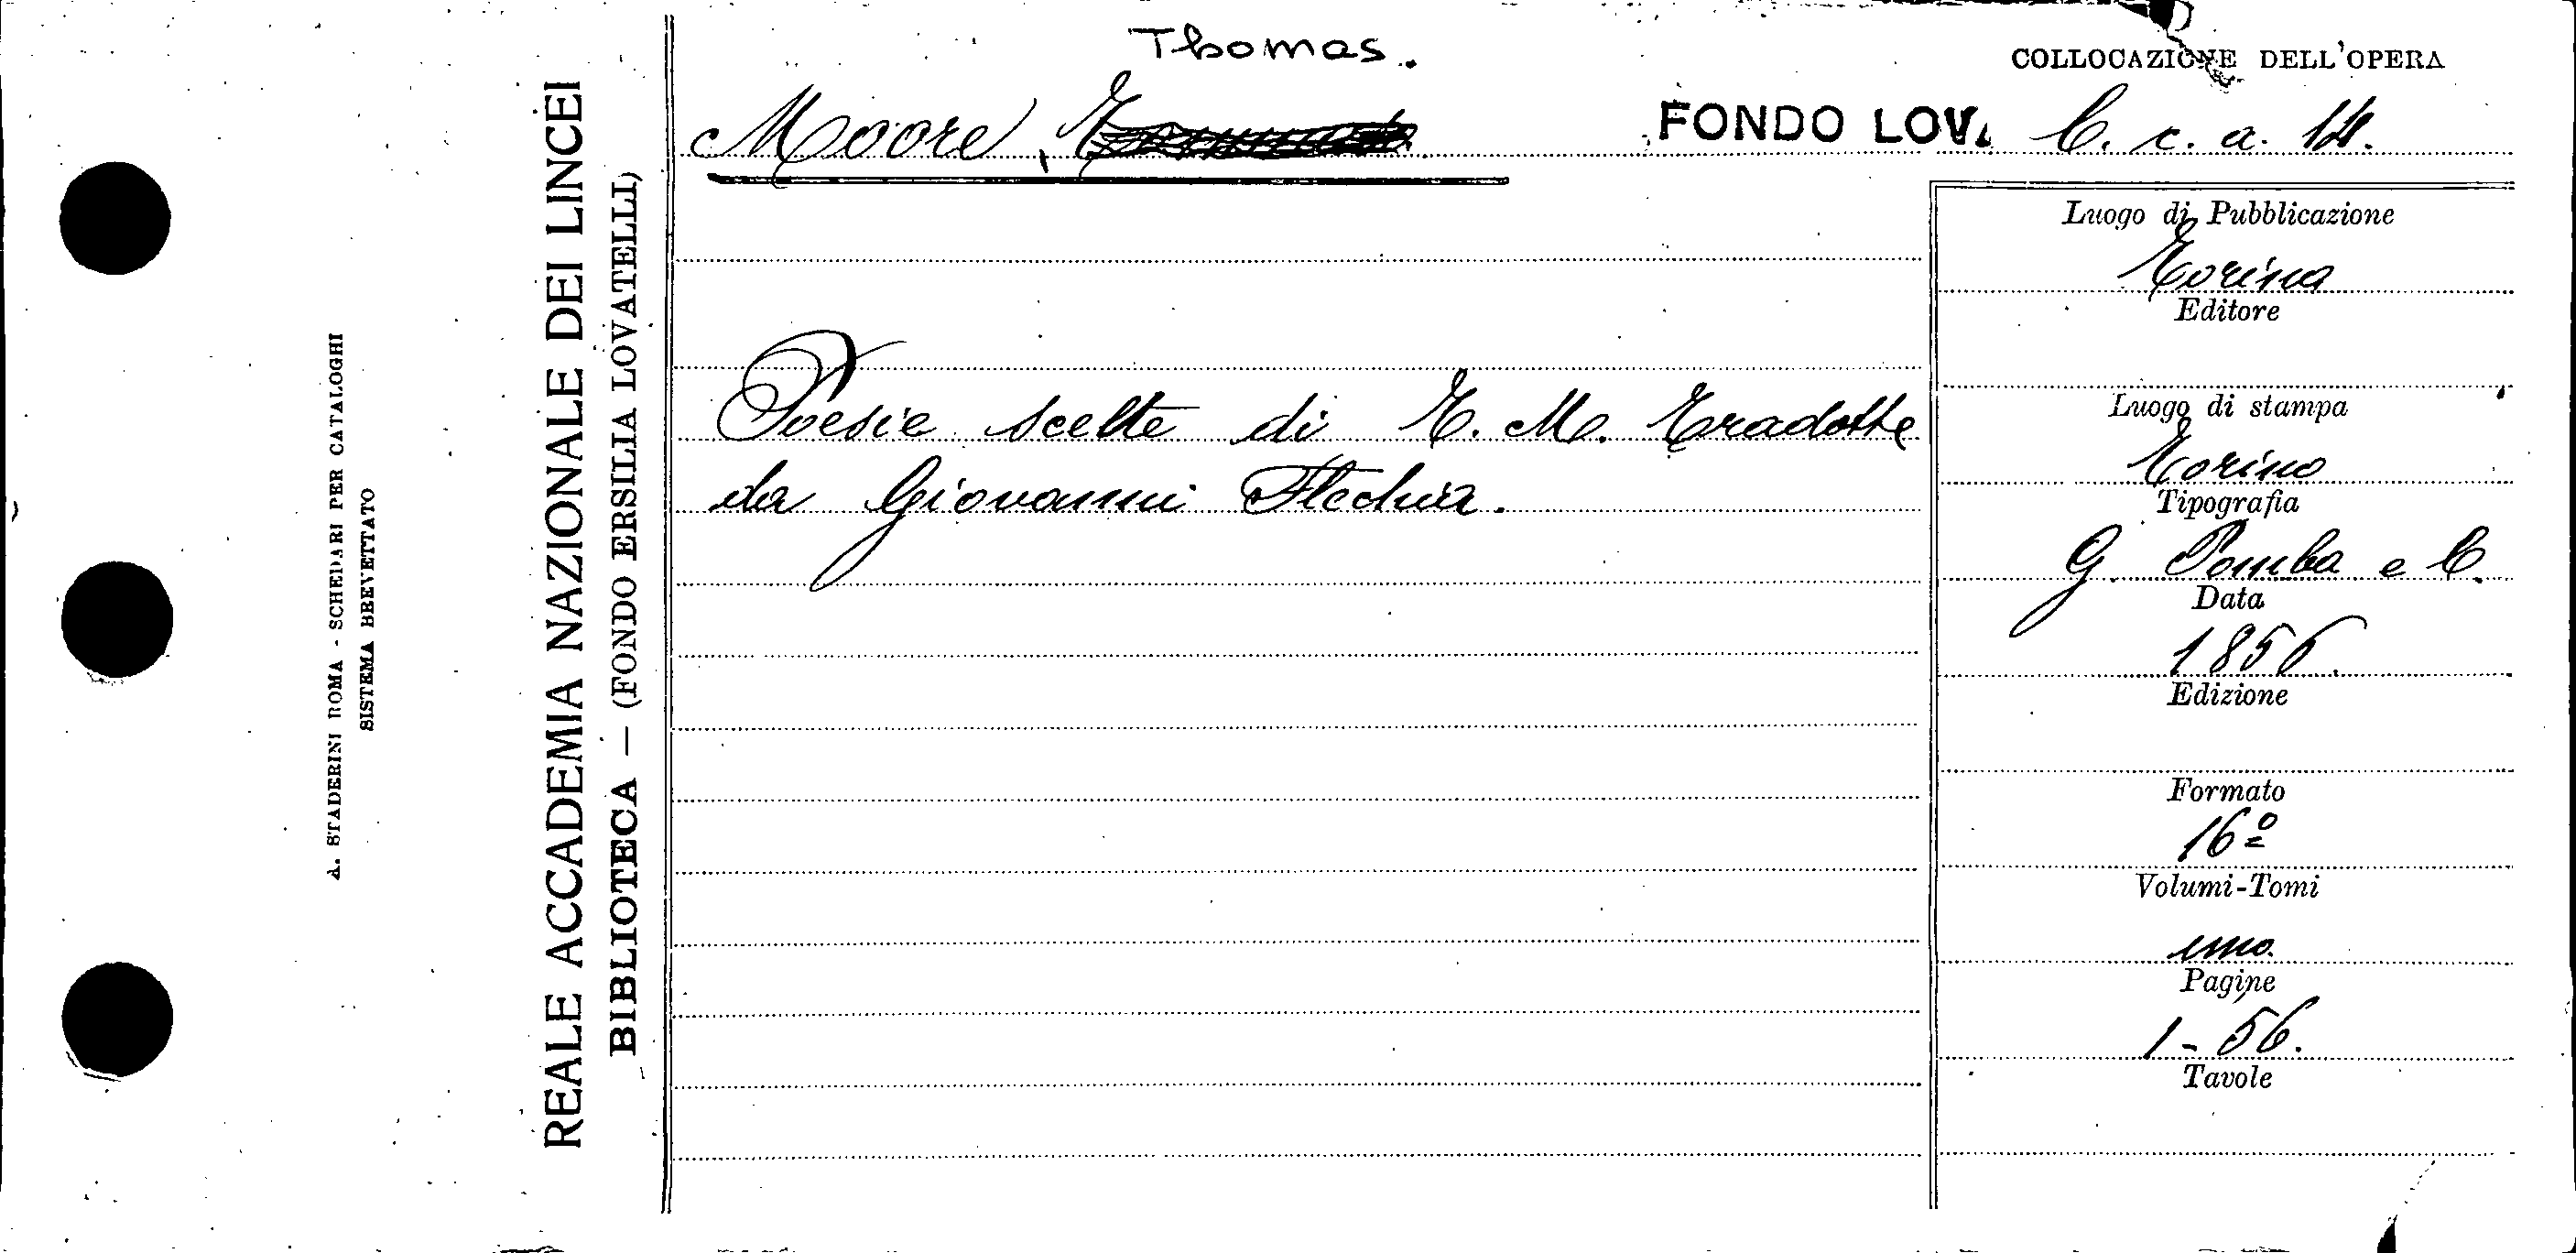 Thomas.
COLLOCAZIONE DELL'OPERA
Moore,
FONDO LOV. C. c. a. 14.
REALE ACCADEMIA NAZIONALE DEI LINCEI
BIBLIOTECA — (FONDO ERSILIA LOVATELLI)
A. STADERINI ROMA - SCHEDARI PER CATALOGHI
SISTEMA BREVETTATO
Poesie scelte di T. M. Tradotte
da Giovanni Flechia.
Luogo di Pubblicazione
Torino
Editore
Luogo di stampa
Torino
Tipografia
G. Pomba e C.
Data
1856.
Edizione
Formato
16º
Volumi-Tomi
uno.
Pagine
1-56.
Tavole